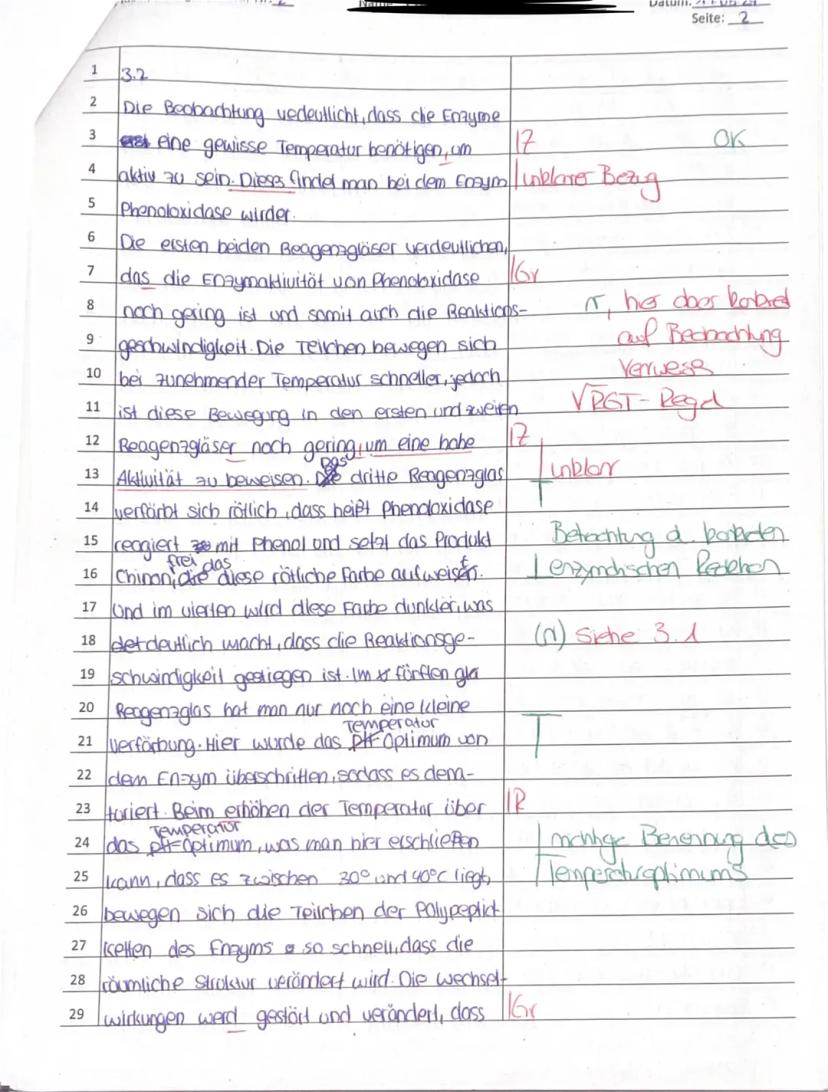 Datum:
Seite: 2
1 3.2
2 Die Beobachtung vedeutlicht, dass die Enzyme
3 eine gewisse Temperatur benötigen, um |Z OK
4 aktiv zu sein. Dieses findet man bei dem Enzym | unklarer Bezug
5 Phenoloxidase wirder.
6 Die ersten beiden Reagenzgläser verdeutlichen,
7 das die Enzymaktivität von Phenoloxidase |Gr
8 noch gering ist und somit auch die Reaktions- hier aber konkret
9 geschwindigkeit. Die Teilchen bewegen sich auf Beobachtung
10 bei zunehmender Temperatur schneller, jedoch
11 ist diese Bewegung in den ersten und zweiten √RGT-Regel
12 Reagenzgläser noch gering, um eine hohe |Z
13 Aktivität zu beweisen. Das dritte Reagenzglas | unklar
14 verfärbt sich rötlich, dass heißt Phenoloxidase
15 reagiert mit Phenol und setzt das Produkt Betrachtung d. konkreten
16 Chinon frei, das diese rötliche Farbe aufweist. enzymatischen Reaktion
17 Und im vierten wird diese Farbe dunkler, was
18 deutlich macht, dass die Reaktionsge- Siehe 3.1
19 schwindigkeit gestiegen ist. Im fünften
20 Reagenzglas hat man nur noch eine kleine
21 Verfärbung. Hier wurde das Temperatur Optimum von
22 dem Enzym überschritten, sodass es dena-
23 turiert. Beim erhöhen der Temperatur über |R
24 das Temperatur Optimum, was man hier erschließen Benennung des
25 kann, dass es zwischen 30° und 40°C liegt, Temperaturoptimums
26 bewegen sich die Teilchen der Polypeptid
27 ketten des Enzyms so schnell, dass die
28 räumliche Struktur verändert wird. Die Wechsel-
29 wirkungen werd gestört und verändert, dass |Gr